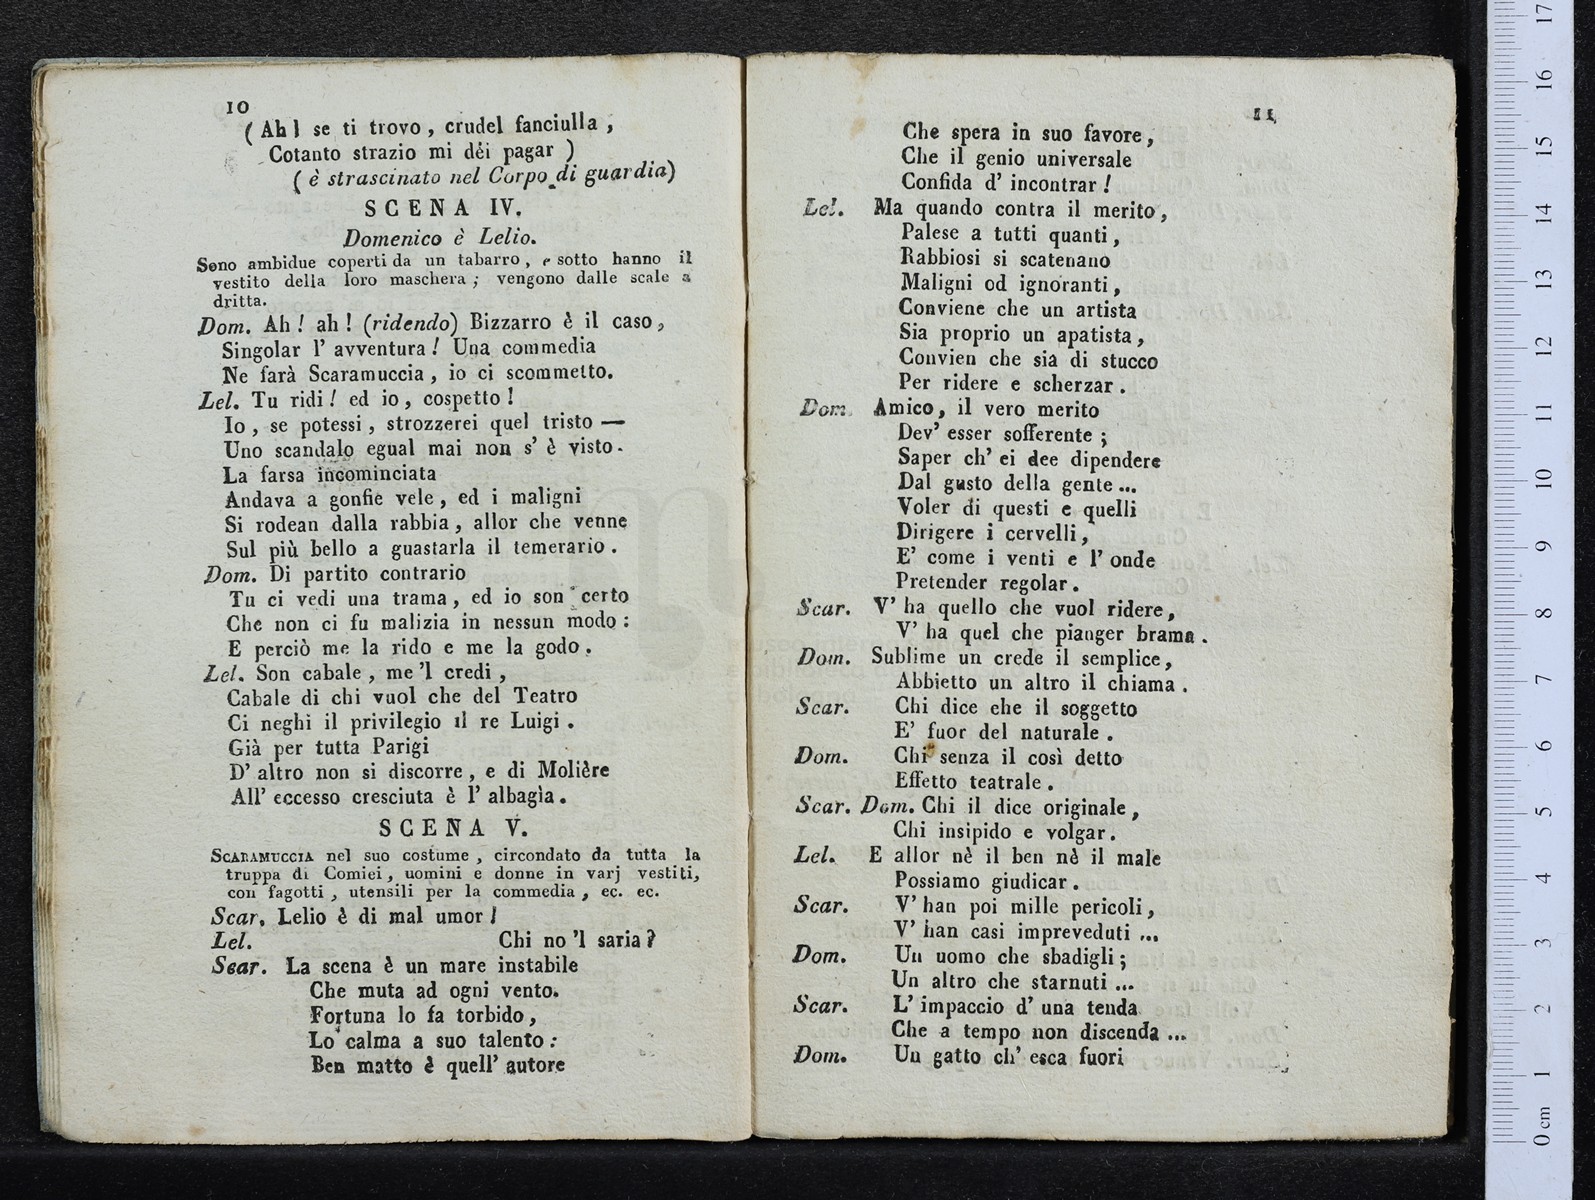 10
( Ah! se ti trovo, crudel fanciulla,
Cotanto strazio mi dèi pagar )
( è strascinato nel Corpo di guardia)
SCENA IV.
Domenico è Lelio.
Sono ambidue coperti da un tabarro, e sotto hanno il
vestito della loro maschera; vengono dalle scale a
dritta.
Dom. Ah! ah! (ridendo) Bizzarro è il caso,
Singolar l' avventura! Una commedia
Ne farà Scaramuccia, io ci scommetto.
Lel. Tu ridi! ed io, cospetto!
Io, se potessi, strozzerei quel tristo —
Uno scandalo egual mai non s' è visto.
La farsa incominciata
Andava a gonfie vele, ed i maligni
Si rodean dalla rabbia, allor che venne
Sul più bello a guastarla il temerario.
Dom. Di partito contrario
Tu ci vedi una trama, ed io son certo
Che non ci fu malizia in nessun modo:
E perciò me la rido e me la godo.
Lel. Son cabale, me 'l credi,
Cabale di chi vuol che del Teatro
Ci neghi il privilegio il re Luigi.
Già per tutta Parigi
D' altro non si discorre, e di Molière
All' eccesso cresciuta è l' albagìa.
SCENA V.
SCARAMUCCIA nel suo costume, circondato da tutta la
truppa di Comici, uomini e donne in varj vestiti,
con fagotti, utensili per la commedia, ec. ec.
Scar. Lelio è di mal umor!
Lel. Chi no 'l saria?
Scar. La scena è un mare instabile
Che muta ad ogni vento.
Fortuna lo fa torbido,
Lo calma a suo talento:
Ben matto è quell' autore
11
Che spera in suo favore,
Che il genio universale
Confida d' incontrar!
Lel. Ma quando contra il merito,
Palese a tutti quanti,
Rabbiosi si scatenano
Maligni od ignoranti,
Conviene che un artista
Sia proprio un apatista,
Convien che sia di stucco
Per ridere e scherzar.
Dom. Amico, il vero merito
Dev' esser sofferente;
Saper ch' ei dee dipendere
Dal gusto della gente...
Voler di questi e quelli
Dirigere i cervelli,
E' come i venti e l' onde
Pretender regolar.
Scar. V' ha quello che vuol ridere,
V' ha quel che pianger brama.
Dom. Sublime un crede il semplice,
Abbietto un altro il chiama.
Scar. Chi dice che il soggetto
E' fuor del naturale.
Dom. Chi senza il così detto
Effetto teatrale.
Scar. Dom. Chi il dice originale,
Chi insipido e volgar.
Lel. E allor nè il ben nè il male
Possiamo giudicar.
Scar. V' han poi mille pericoli,
V' han casi impreveduti ...
Dom. Un uomo che sbadigli;
Un altro che starnuti ...
Scar. L' impaccio d' una tenda
Che a tempo non discenda ...
Dom. Un gatto ch' esca fuori
0 cm 1 2 3 4 5 6 7 8 9 10 11 12 13 14 15 16 17